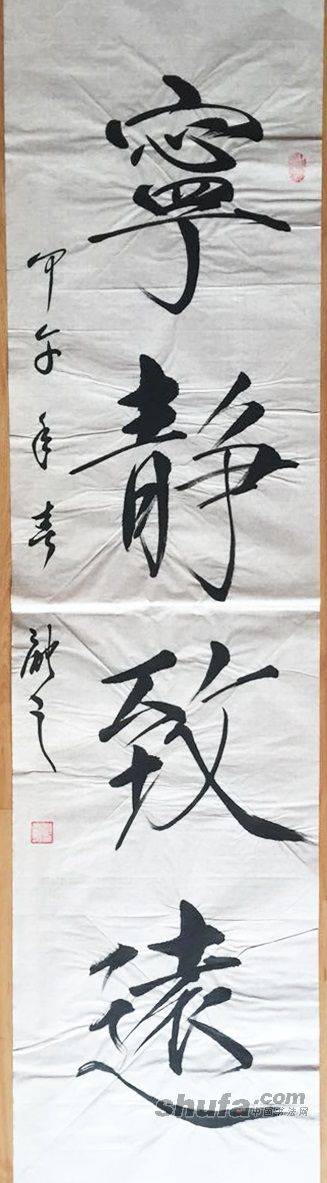 寧靜致遠
甲午年春
融之
shufa.com
中国书法网